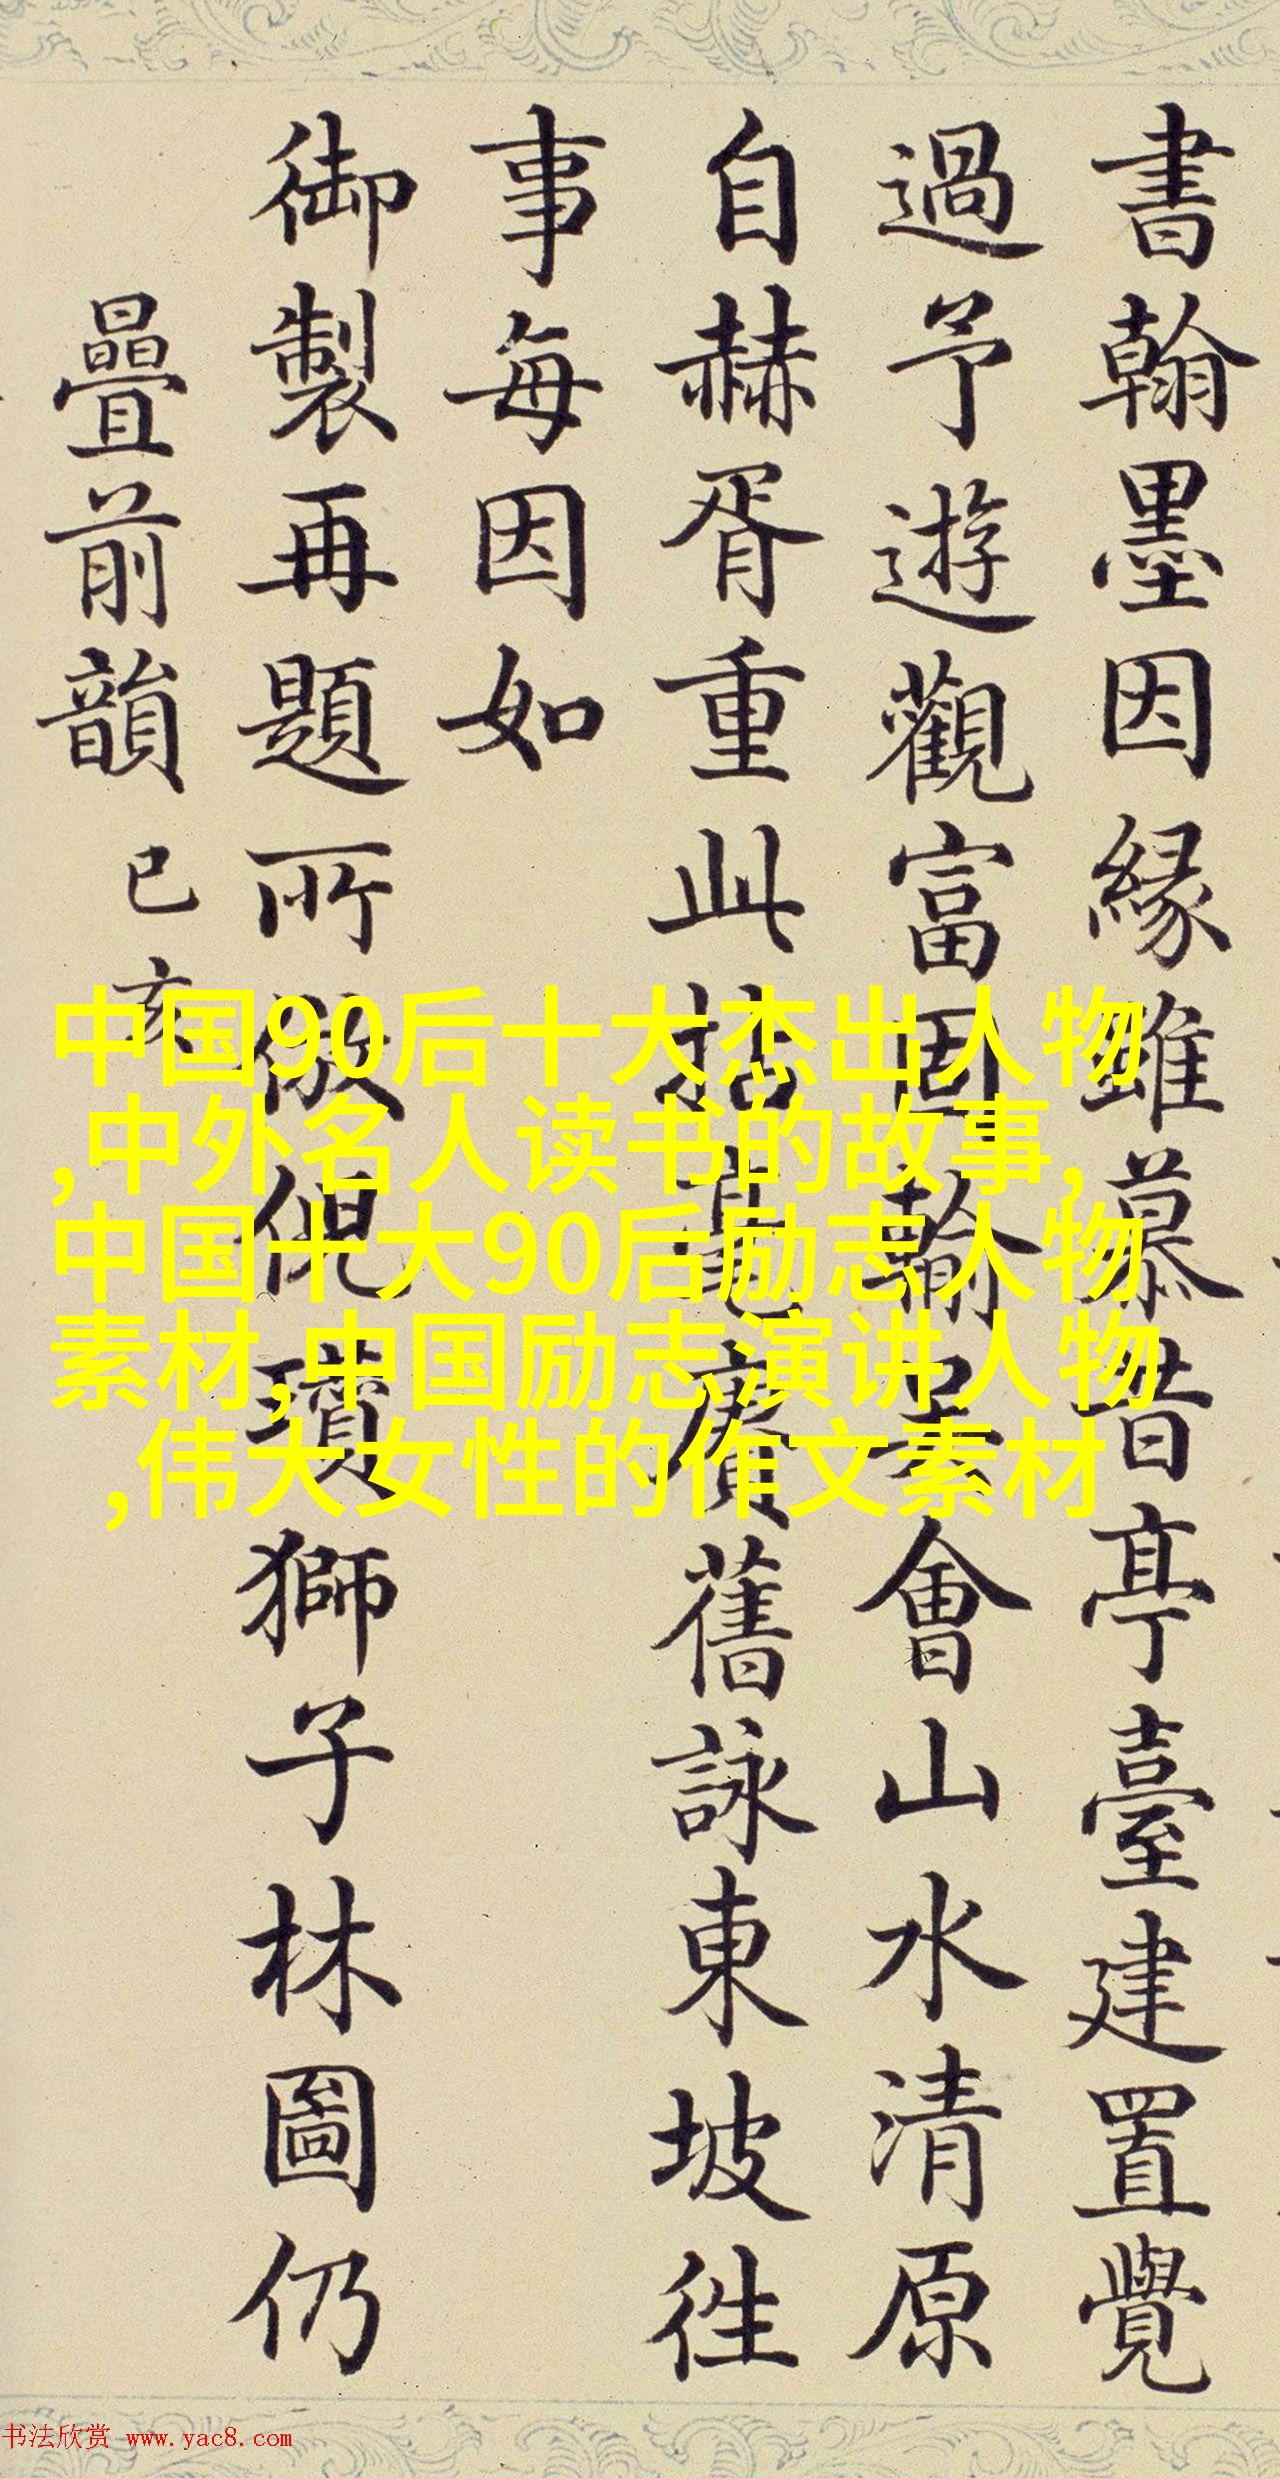 書翰墨因緣雖慕昔亭臺建置覺
過予遊觀富固輸吾會山水清原
自赫胥重此拈毫賡舊詠東坡徃
事每因如
御製再題所倣倪瓚獅子林圖仍
疊前韻已亥
中国90后十大杰出人物
,中外名人读书的故事,
中国十大90后励志人物
素材,中国励志演讲人物
,伟大女性的作文素材
书法欣赏 www.yac8.com